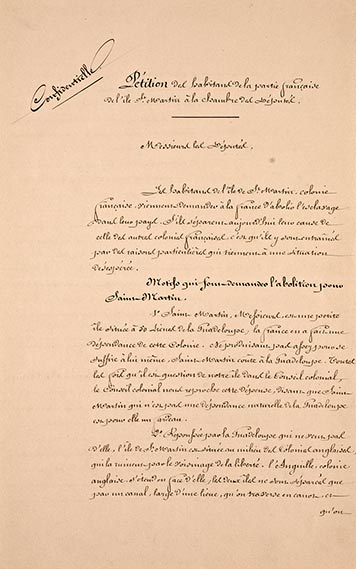 Confidentielle
Pétition des habitans de la partie française
de l'île St. Martin à la Chambre des Députés.
Messieurs les Députés.
Les habitans de l'île de St. Martin, colonie
française, viennent demander à la france d'abolir l'esclavage
dans leur pays. S'ils séparent aujourd'hui leur cause de
celle des autres colonies françaises, c'est qu'ils y sont entrainés
par des raisons particulières qui tiennent à une situation
désespérée.
Motifs qui font demander l'abolition pour
Saint Martin.
1° Saint Martin, Messieurs, est une petite
île située à 50 lieues de la Guadeloupe, la france en a fait une
dépendance de cette Colonie. Ne produisant pas assez pour se
suffire à lui même, Saint Martin coûte à la Guadeloupe. Toutes
les fois qu'il est question de notre île dans le Conseil colonial,
le Conseil colonial nous reproche cette dépense, disant que Saint
Martin qui n'est pas une dépendance naturelle de la Guadeloupe
est pour elle un fardeau.
2° Repoussée par la Guadeloupe qui ne veut pas
d'elle, l'île de St. Martin est située au milieu des Colonies anglaises,
qui la ruinent par le voisinage de la liberté. l'Anguille, colonie
anglaise, s'étend en face d'elle, les deux îles ne sont séparées que
par un canal, large d'une lieue, qu'on traverse en canot, et
qu'on